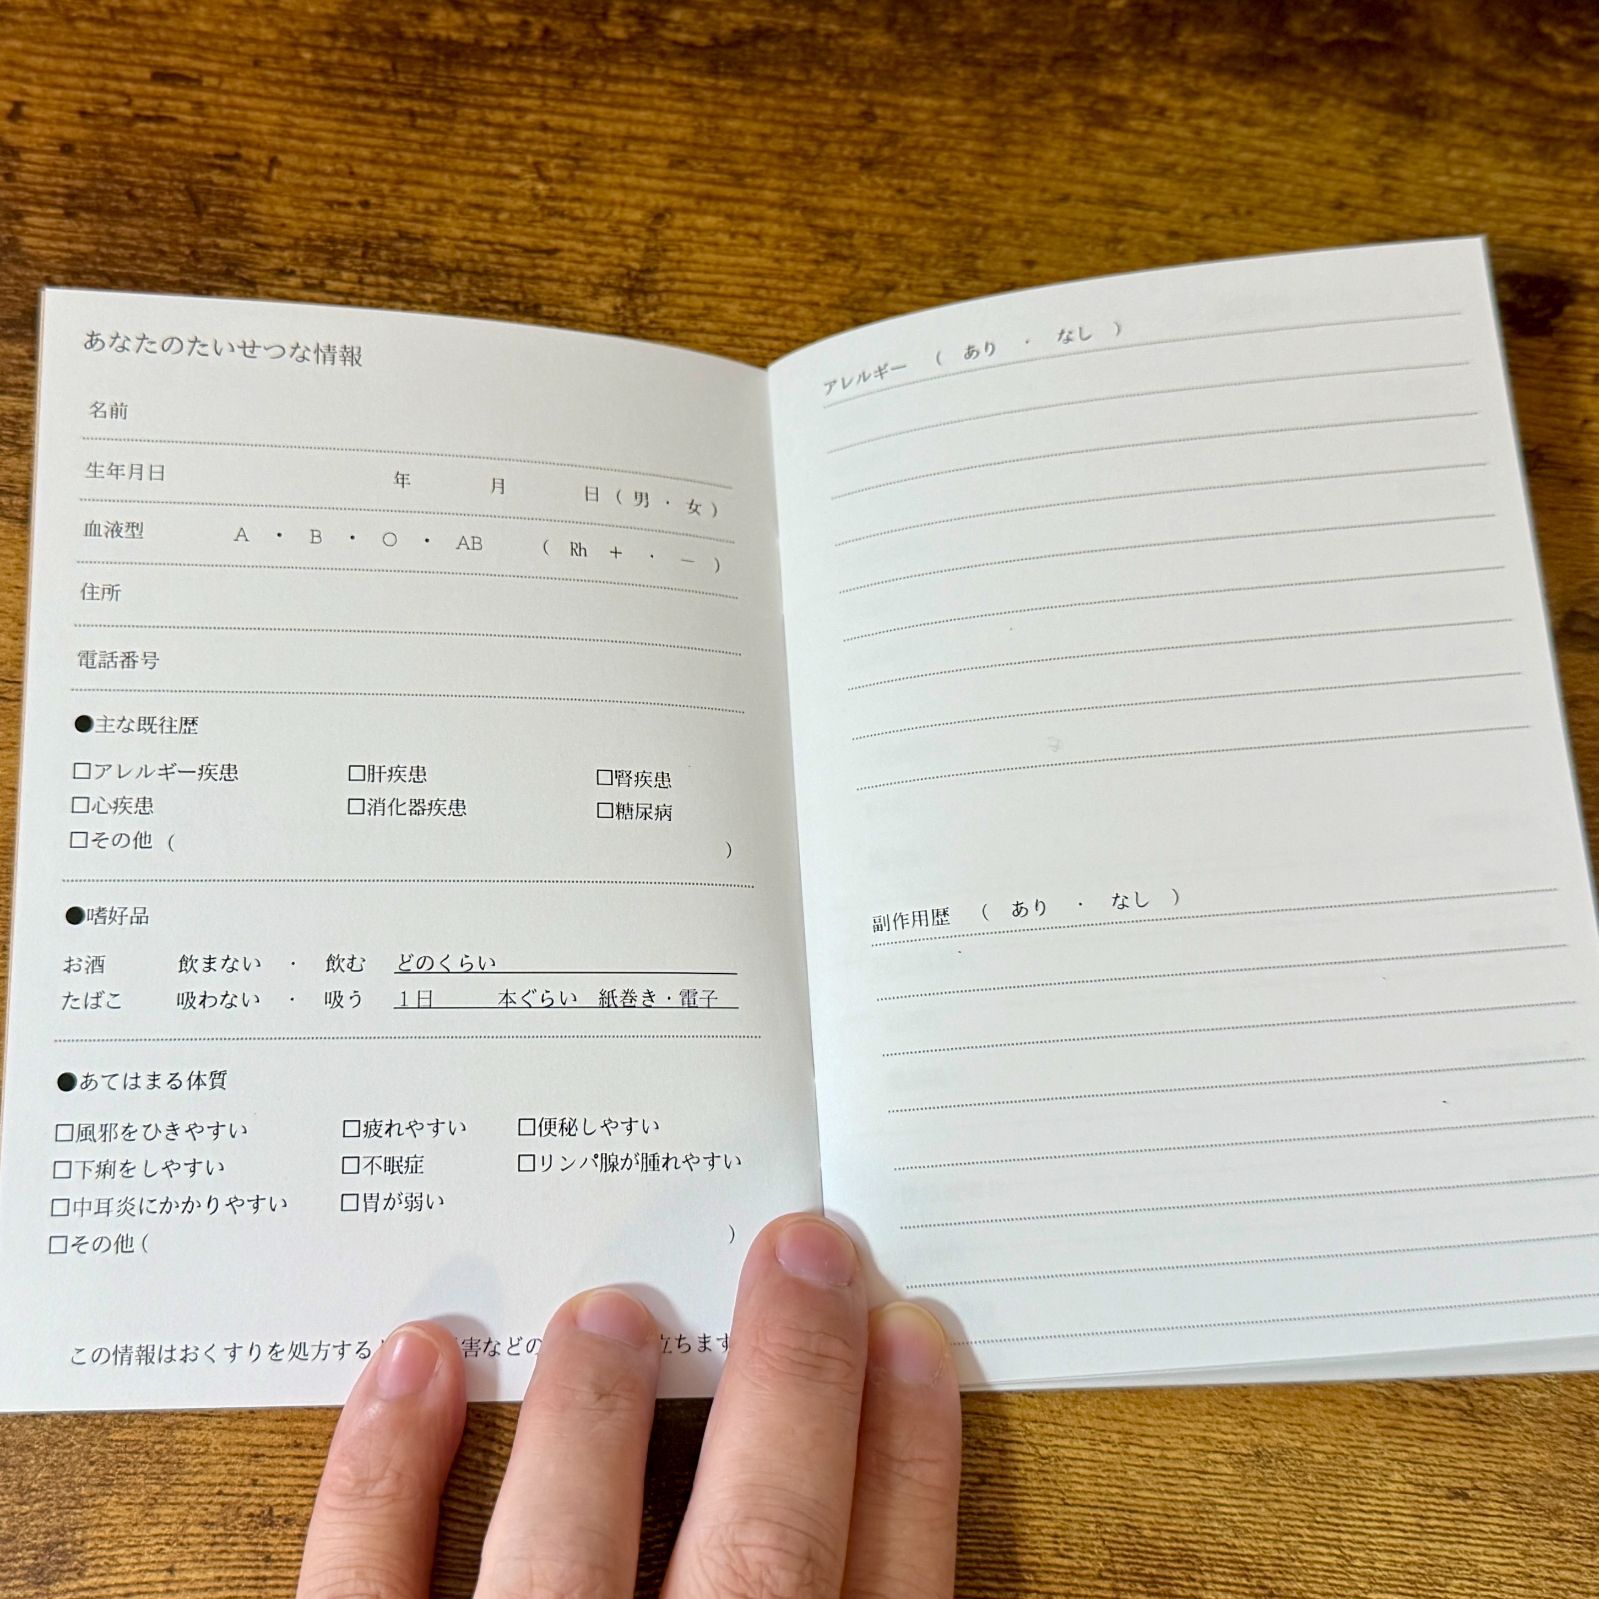 あなたのたいせつな情報
名前
生年月日　年　月　日（男・女）
血液型　A ・ B ・ O ・ AB （ Rh ＋ ・ － ）
住所
電話番号
●主な既往歴
□アレルギー疾患 □肝疾患 □腎疾患
□心疾患 □消化器疾患 □糖尿病
□その他（　）
●嗜好品
お酒 飲まない ・ 飲む どのくらい
たばこ 吸わない ・ 吸う 1日　本ぐらい 紙巻き・電子
●あてはまる体質
□風邪をひきやすい □疲れやすい □便秘しやすい
□下痢をしやすい □不眠症 □リンパ腺が腫れやすい
□中耳炎にかかりやすい □胃が弱い
□その他（　）
この情報はおくすりを処方する 害などの 立ちます
アレルギー （ あり ・ なし ）
副作用歴 （ あり ・ なし ）